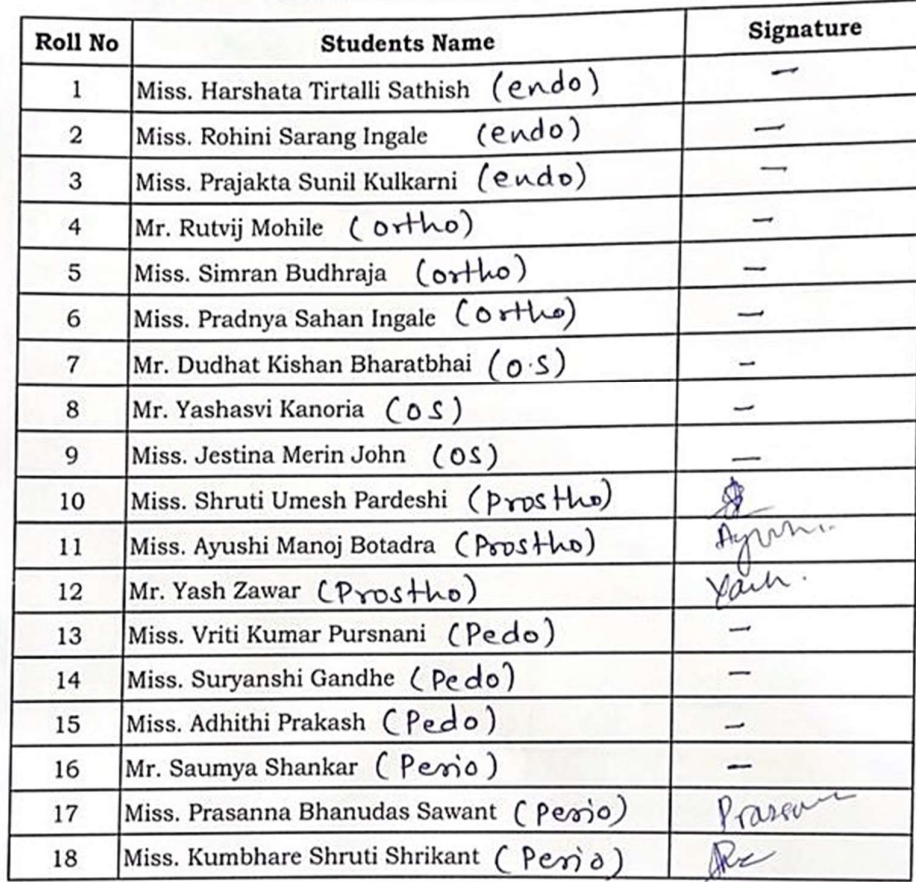 Roll No Students Name Signature
1 Miss. Harshata Tirtalli Sathish (endo) –
2 Miss. Rohini Sarang Ingale (endo) –
3 Miss. Prajakta Sunil Kulkarni (endo) –
4 Mr. Rutvij Mohile (ortho) –
5 Miss. Simran Budhraja (ortho) –
6 Miss. Pradnya Sahan Ingale (ortho) –
7 Mr. Dudhat Kishan Bharatbhai (O.S) –
8 Mr. Yashasvi Kanoria (OS) –
9 Miss. Jestina Merin John (OS) –
10 Miss. Shruti Umesh Pardeshi (Prostho)
11 Miss. Ayushi Manoj Botadra (Prostho)
12 Mr. Yash Zawar (Prostho) Yash.
13 Miss. Vriti Kumar Pursnani (Pedo) –
14 Miss. Suryanshi Gandhe (Pedo) –
15 Miss. Adhithi Prakash (Pedo) –
16 Mr. Saumya Shankar (Perio) –
17 Miss. Prasanna Bhanudas Sawant (Perio)
18 Miss. Kumbhare Shruti Shrikant (Perio)